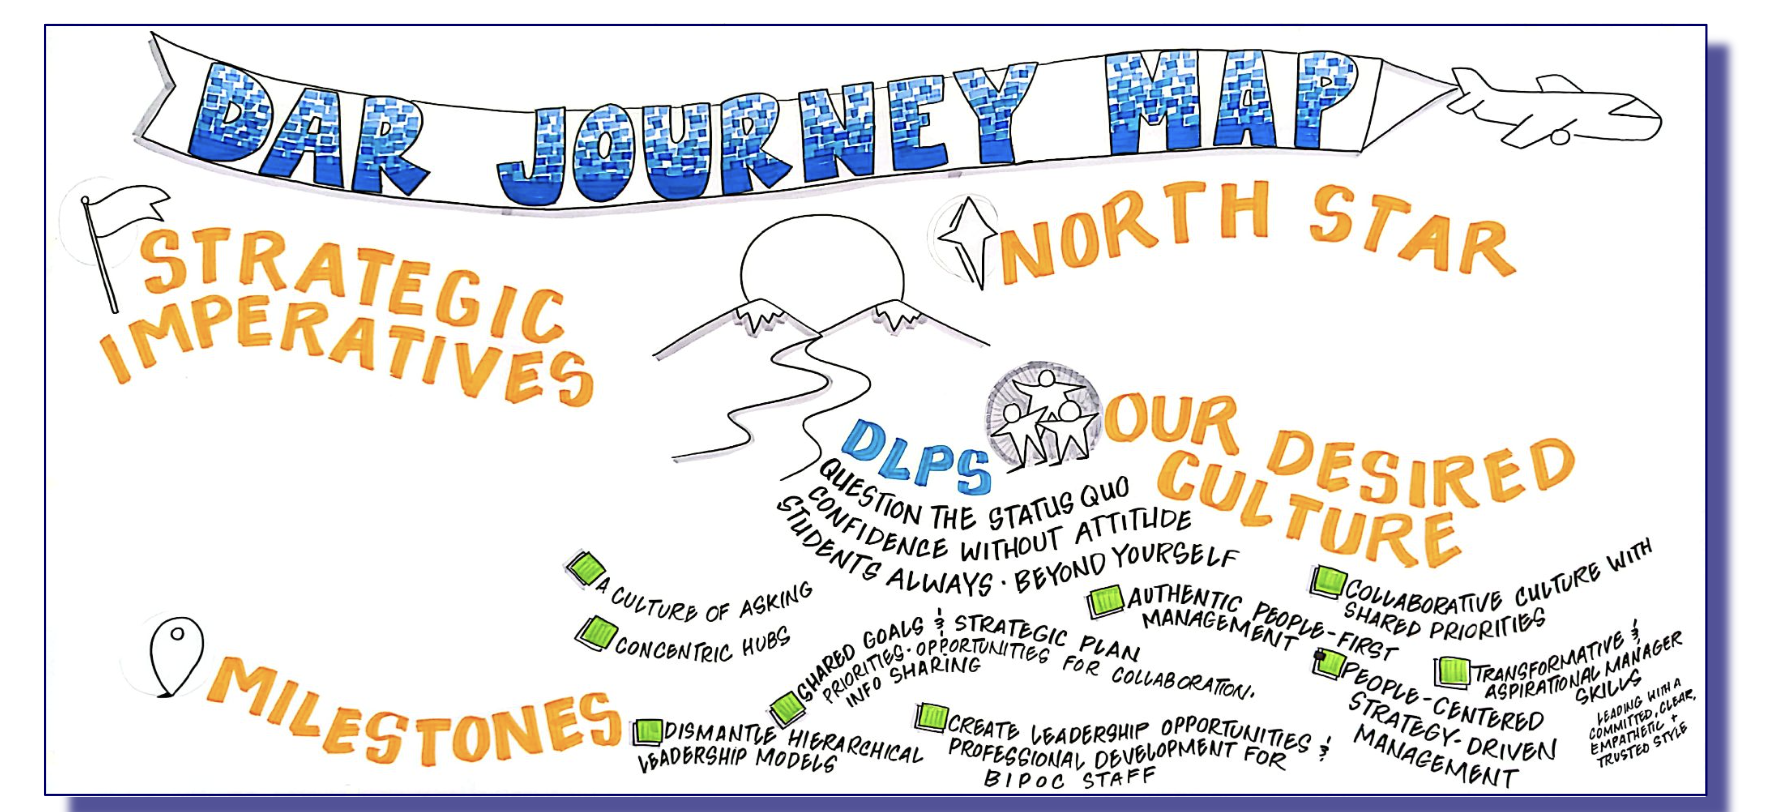 DAR JOURNEY MAP
STRATEGIC
IMPERATIVES
NORTH STAR
OUR DESIRED
CULTURE
DLPS
QUESTION THE STATUS QUO
CONFIDENCE WITHOUT ATTITUDE
STUDENTS ALWAYS · BEYOND YOURSELF
A CULTURE OF ASKING
CONCENTRIC HUBS
SHARED GOALS & STRATEGIC PLAN
PRIORITIES · OPPORTUNITIES FOR COLLABORATION.
INFO SHARING
AUTHENTIC PEOPLE-FIRST
MANAGEMENT
COLLABORATIVE CULTURE WITH
SHARED PRIORITIES
PEOPLE-CENTERED
STRATEGY-DRIVEN
MANAGEMENT
TRANSFORMATIVE &
ASPIRATIONAL MANAGER
SKILLS
LEADING WITH A
COMMITTED, CLEAR,
EMPATHETIC +
TRUSTED STYLE
MILESTONES
DISMANTLE HIERARCHICAL
LEADERSHIP MODELS
CREATE LEADERSHIP OPPORTUNITIES &
PROFESSIONAL DEVELOPMENT FOR
BIPOC STAFF